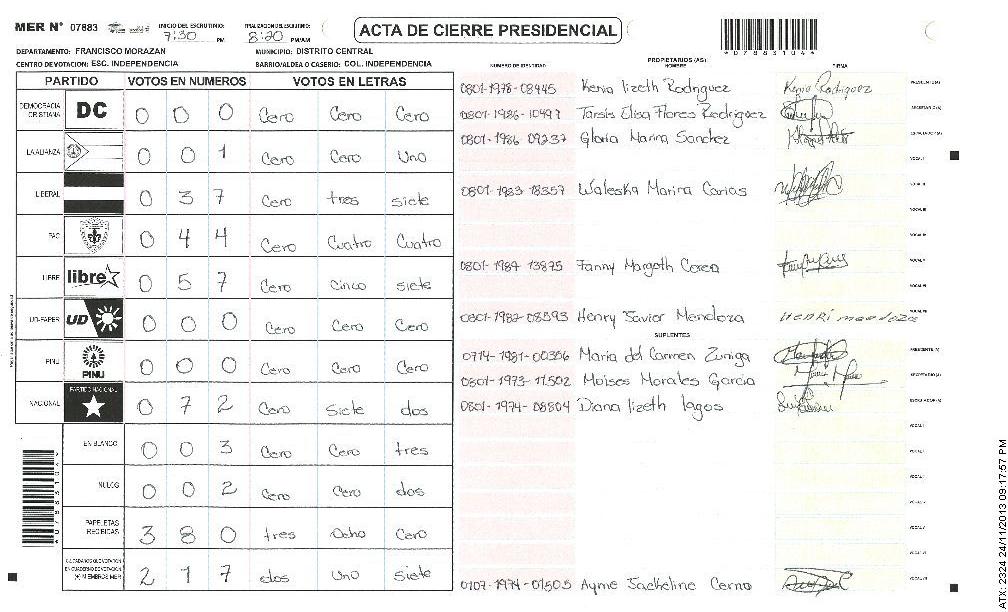 MER N° 07883 INICIO DEL ESCRUTINIO: 7:30 PM FINALIZACION DEL ESCRUTINIO: 8:20 PM/AM ACTA DE CIERRE PRESIDENCIAL *07883104*
DEPARTAMENTO: FRANCISCO MORAZAN MUNICIPIO: DISTRITO CENTRAL
CENTRO DE VOTACION: ESC. INDEPENDENCIA BARRIO/ALDEA O CASERIO: COL. INDEPENDENCIA
PARTIDO VOTOS EN NUMEROS VOTOS EN LETRAS
DEMOCRACIA CRISTIANA DC 0 0 0 Cero Cero Cero
LA ALIANZA 0 0 1 Cero Cero Uno
LIBERAL 0 3 7 Cero tres siete
PAC 0 4 4 Cero Cuatro Cuatro
LIBRE libre 0 5 7 Cero Cinco siete
UD-FAPER UD 0 0 0 Cero Cero Cero
PINU PINU 0 0 0 Cero Cero Cero
NACIONAL PARTIDO NACIONAL 0 7 2 Cero Siete dos
EN BLANCO 0 0 3 Cero Cero tres
NULOS 0 0 2 Cero Cero dos
PAPELETAS RECIBIDAS 3 8 0 tres Ocho Cero
(+) MIEMBROS MER 2 1 7 dos Uno Siete
NUMERO DE IDENTIDAD PROPIETARIOS (AS) NOMBRE FIRMA
0801-1978-08445 Kenia lizeth Rodriguez Kenia Rodriguez PRESIDENTE(A)
0801-1986-10497 Tarsis Elisa Flores Rodriguez SECRETARIO(A)
0801-1986 09237 Gloria Marina Sanchez ESCRUTADOR(A)
VOCAL I
0801-1983-18357 Waleska Marina Carias
0801-1984-13875 Fanny Margoth Cerea
0801-1982-08593 Henry Javier Mendoza Henri mendoza
SUPLENTES
0714-1981-00306 Maria del Carmen Zuniga PRESIDENTE(A)
0801-1973-11502 Moises Morales Garcia SECRETARIO(A)
0801-1974-08804 Diana lizeth lagos ESCRUTADOR(A)
0107-1974-01505 Ayme Jackeline Cerno
ATX: 2324 24/11/2013 09:17:57 PM